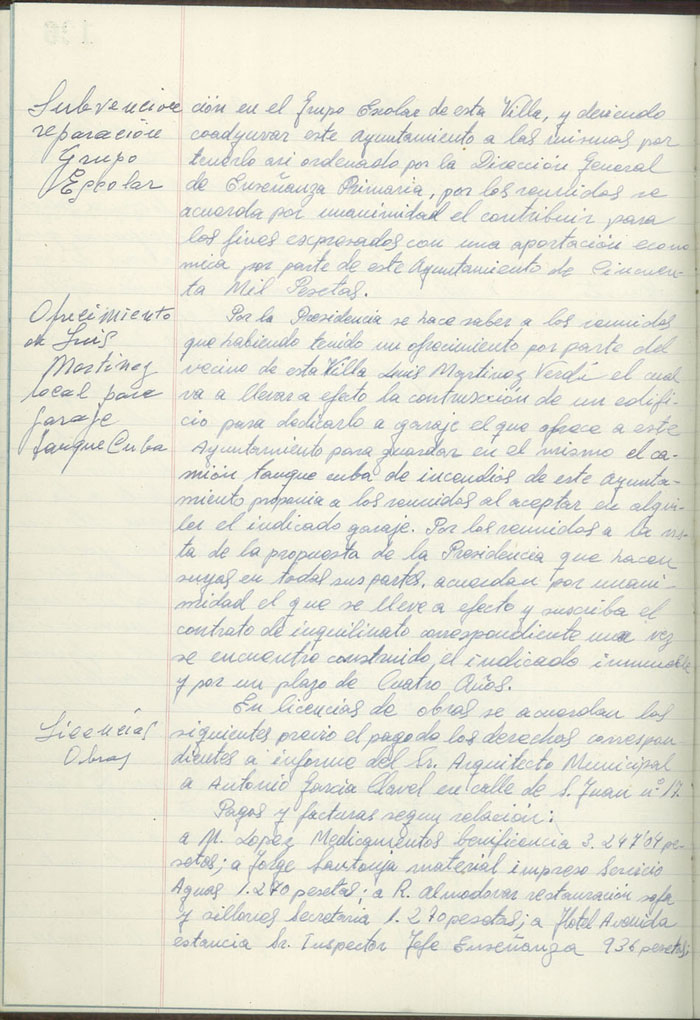 Subvencion
reparación
Grupo
Escolar
ción en el Grupo Escolar de esta Villa, y deviendo
coadyuvar este Ayuntamiento a las mismas por
tenerlo asi ordenado por la Dirección General
de Enseñanza Primaria, por los reunidos se
acuerda por unanimidad el contribuir para
los fines expresados con una aportación econo
mica por parte de este Ayuntamiento de Cincuen-
ta Mil Pesetas.
Ofrecimiento
de Luis
Martinez
local para
garaje
tanque Cuba
Por la Presidencia se hace saber a los reunidos
que habiendo tenido un ofrecimiento por parte del
vecino de esta Villa Luis Martinez Verdú el cual
va a llevar a efecto la contrucción de un edifi-
cio para dedicarlo a garaje el que ofrece a este
Ayuntamiento para guardar en el mismo el ca-
mión tanque cuba de incendios de este Ayunta-
miento proponia a los reunidos al aceptar en alqui-
ler el indicado garaje. Por los reunidos a la vis-
ta de la propuesta de la Presidencia que hacen
suyas en todas sus partes, acuerdan por unani-
midad el que se lleve a efecto y suscriba el
contrato de inquilinato correspondiente una vez
se encuentre construido el indicado inmueble
y por un plazo de Cuatro Años.
Licencias
Obras
En licencias de obras se acuerdan las
siguientes previo el pago de los derechos correspon-
dientes a informe del Sr. Arquitecto Municipal
a Antonio Garcia Clavel en calle de S. Juan nº 17.
Pagos y facturas segun relación:
a M. Lopez Medicamentos benificencia 3.247'04 pe-
setas; a Jorge Santonja material impreso Servicio
Aguas 1.270 pesetas; a R. Almodovar restauración sofa
y sillones Secretaria 1.270 pesetas; a Hotel Avenida
estancia Sr. Inspector Jefe Enseñanza 936 pesetas;